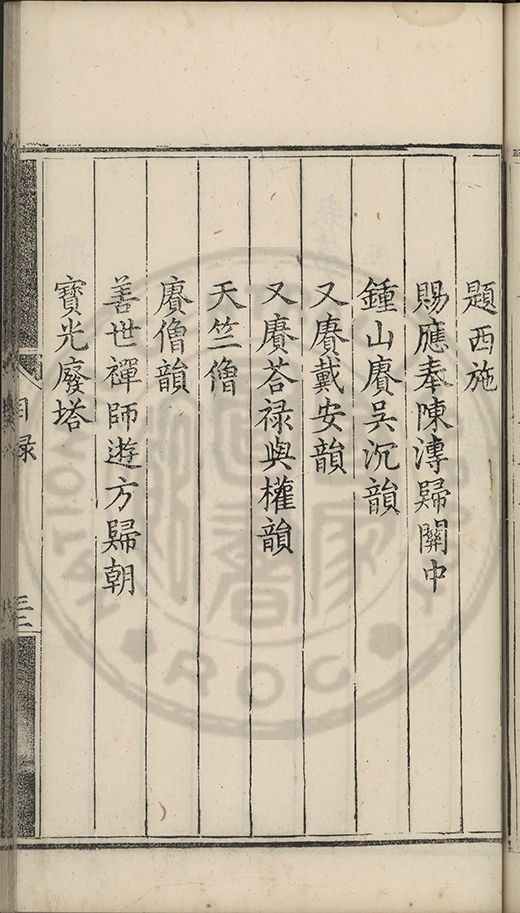 題西施
賜應奉陳溥歸關中
鍾山賡吳沉韻
又賡戴安韻
又賡荅禄與權韻
天竺僧
賡僧韻
善世禪師遊方歸朝
寳光廢塔
目録
三